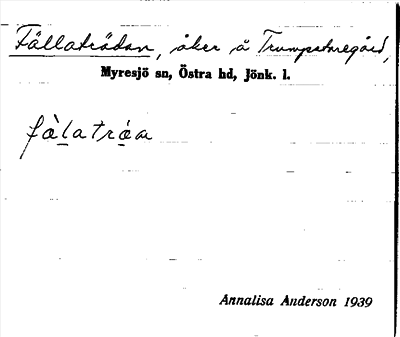 Fällaträdan, åker å Trumpetaregård,
Myresjö sn, Östra hd, Jönk. l.
fàlatráa
Annalisa Anderson 1939